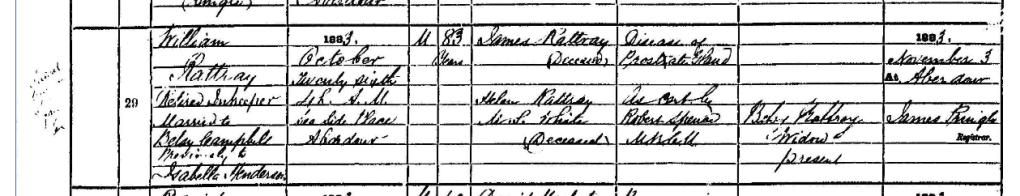 29
William
Rattray
Retired Innkeeper
Married to
Betsy Campbell
Previously to
Isabella Henderson
1883.
October
Twenty sixth
4h. A.M.
Sea Side Place
Aberdour
M
83
Years
James Rattray
(Deceased)
Helen Rattray
M.S. White
(Deceased)
Disease of
Prostrate Gland
As cert by
Robert
Betsy Rattray
Widow
present
1883.
November 3
At Aberdour
James Pringle
Registrar.